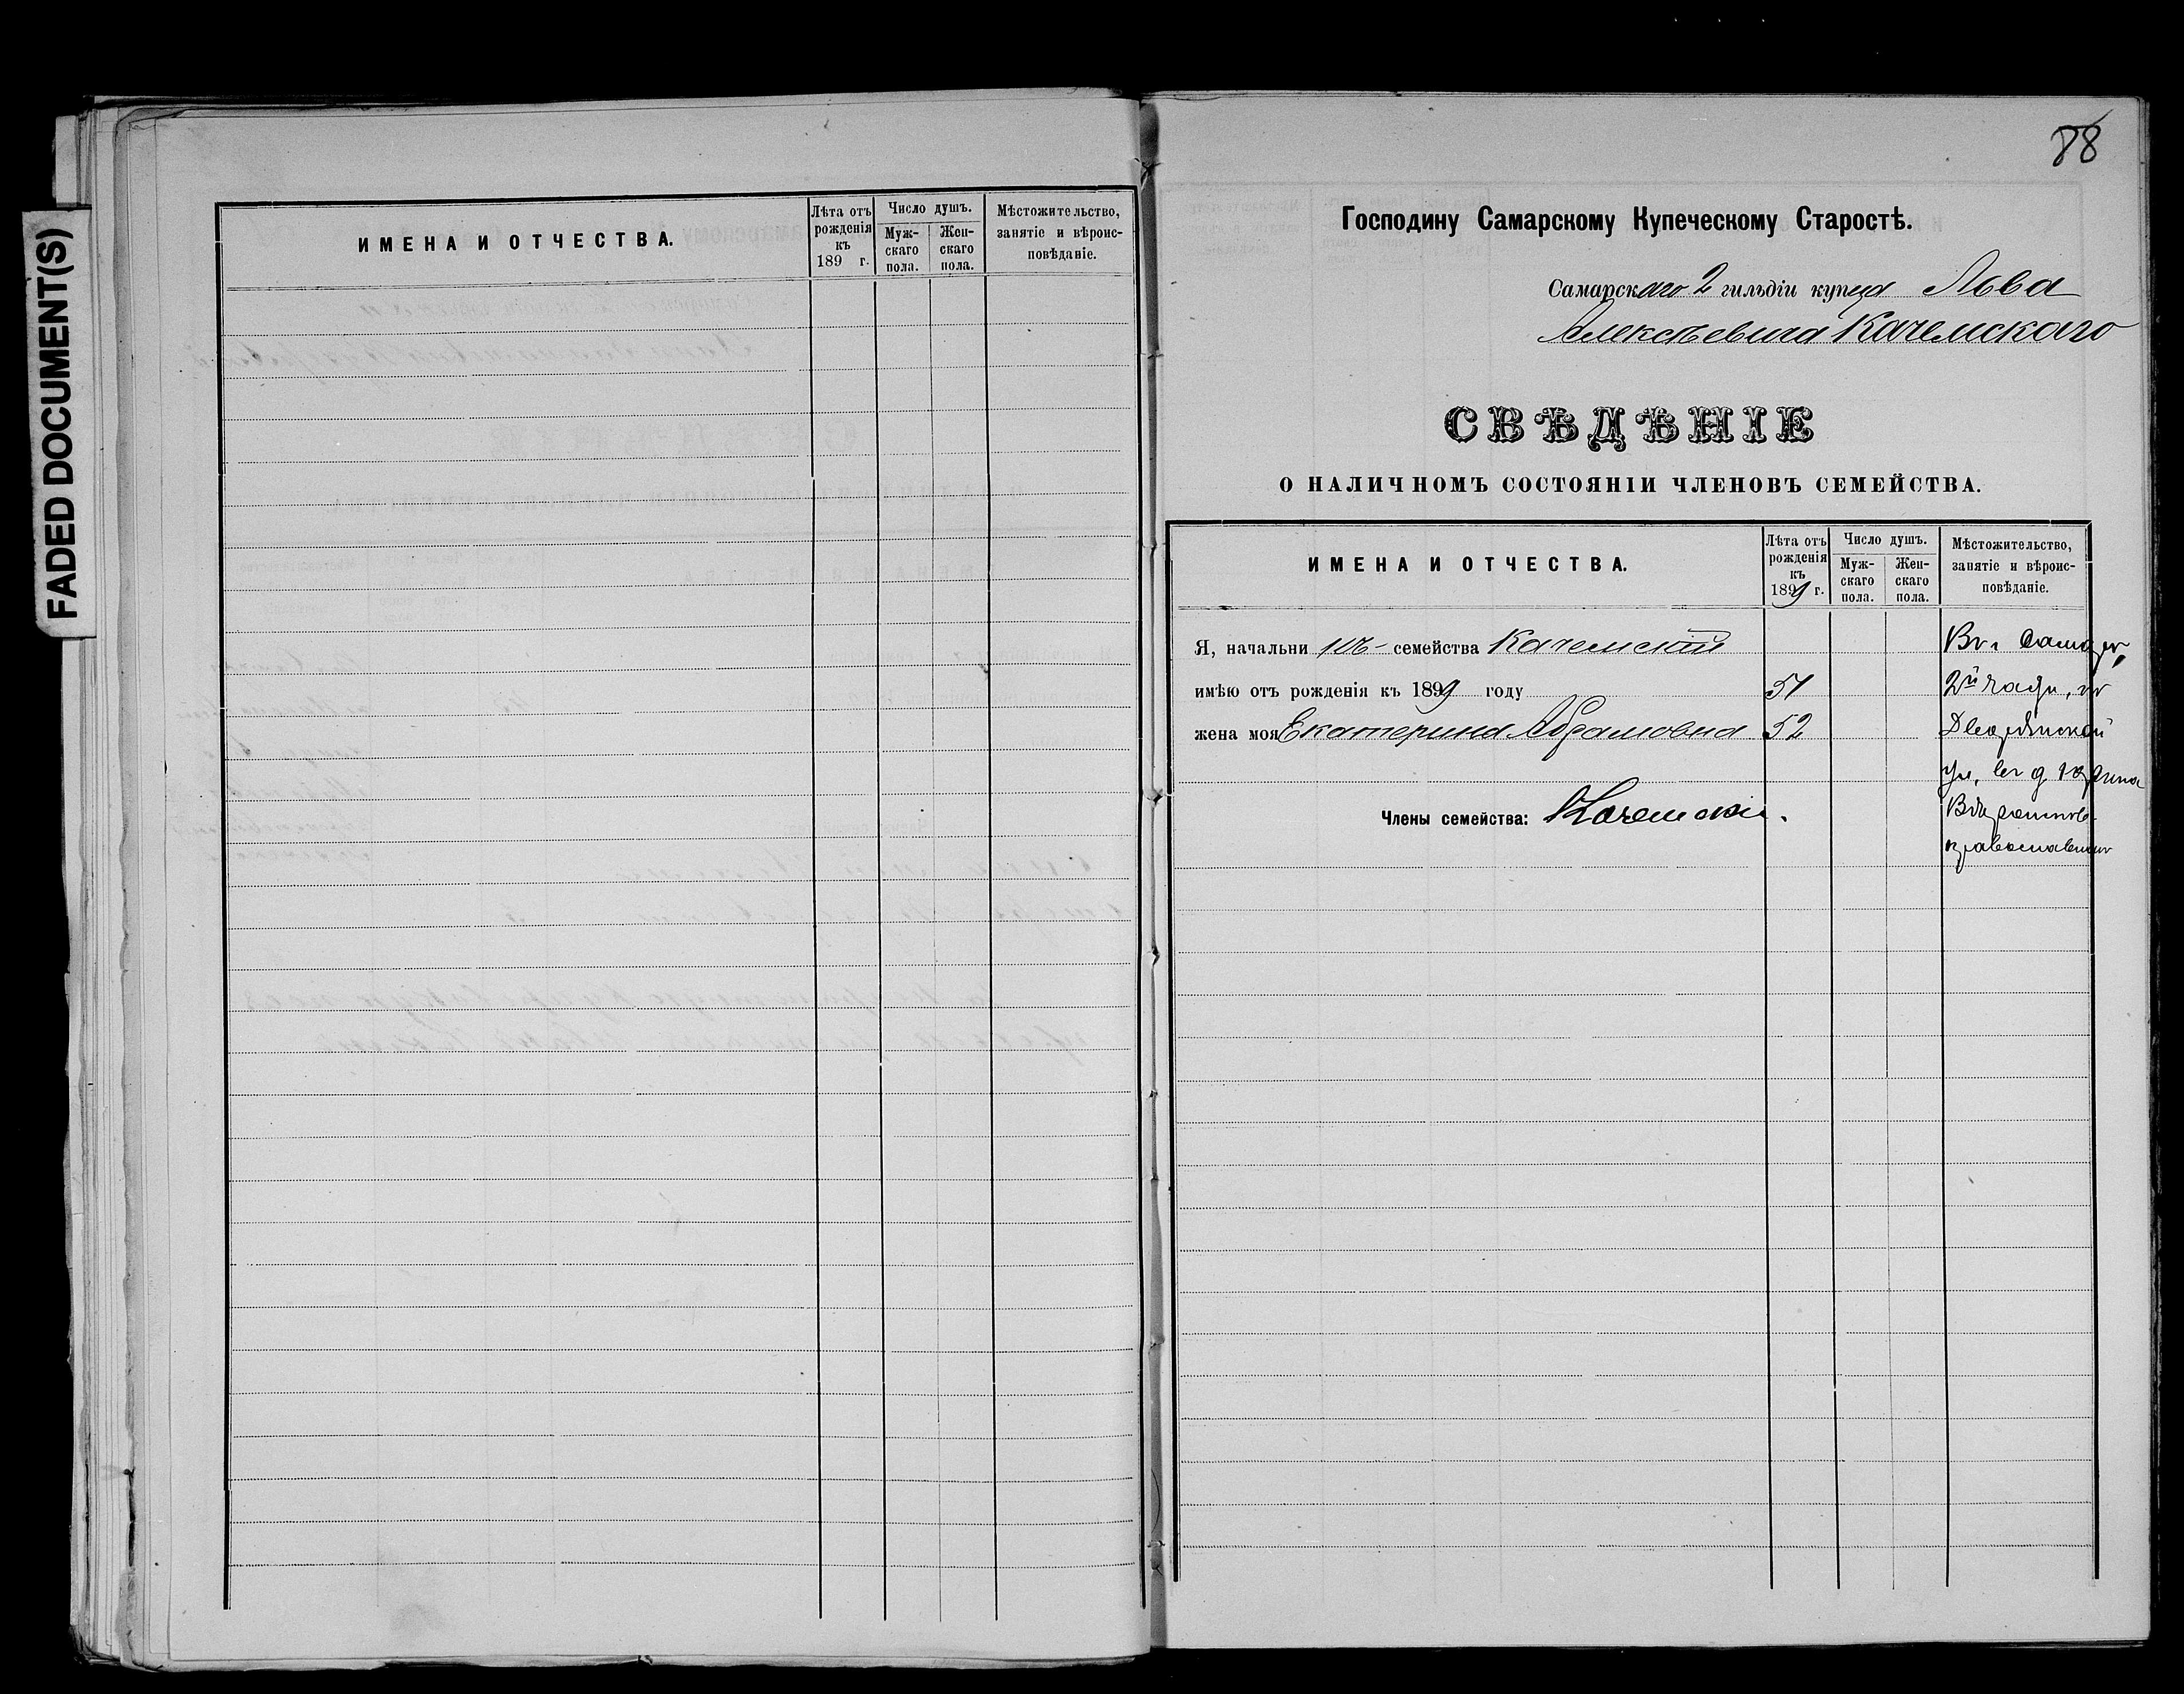 FADED DOCUMENT(S)
ИМЕНА И ОТЧЕСТВА.
Лѣта отъ рожденія къ 189 г.
Число душъ.
Муж-скаго пола.
Жен-скаго пола.
Мѣстожительство, занятіе и вѣроис-повѣданіе.
88
Господину Самарскому Купеческому Старостѣ.
Самарскаго 2 гильдіи купца Льва
Алексѣевича Качемскаго
СВѢДѢНІЕ
О НАЛИЧНОМЪ СОСТОЯНІИ ЧЛЕНОВЪ СЕМЕЙСТВА.
ИМЕНА И ОТЧЕСТВА.
Лѣта отъ рожденія къ 1899 г.
Число душъ.
Муж-скаго пола.
Жен-скаго пола.
Мѣстожительство, занятіе и вѣроис-повѣданіе.
Я, начальни къ семейства Качемскій
Въ г Самарѣ,
имѣю отъ рожденія къ 1899 году 51
2й части, по
жена моя Екатерина Абрамовна 52
Дворянской
ул, въ д
Члены семейства: Качемскій.
Вѣроисповѣ-
православнаго